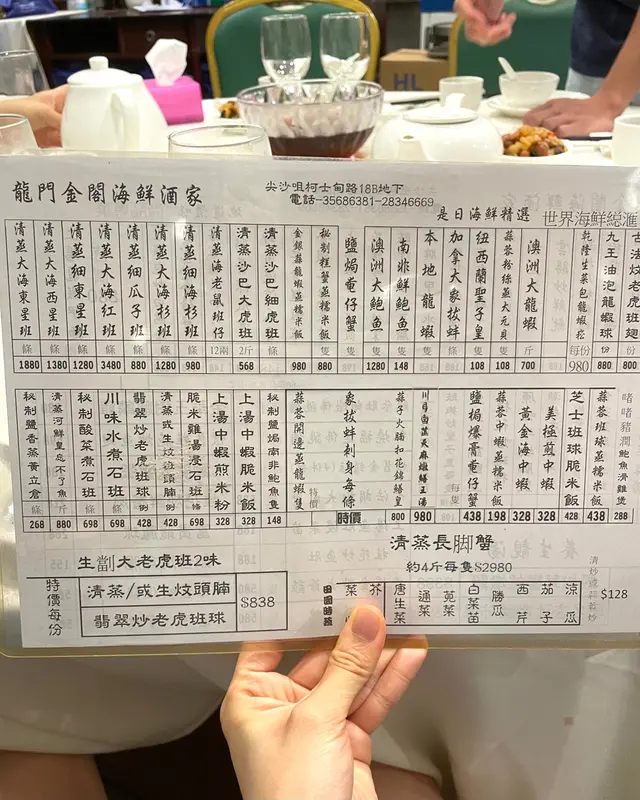 龍門金閣海鮮酒家
尖沙咀柯士甸路18B地下
電話-35686381-28346669
是日海鮮精選
世界海鮮総滙
清蒸大海東星班 條 1880
清蒸大海西星班 條 1380
清蒸細東星班 條 1280
清蒸大海紅班 條 3480
清蒸細瓜子班 條 880
清蒸大海杉班 條 1280
清蒸細海杉班 條 980
清蒸海老鼠班仔 12兩
清蒸沙巴大虎班 2斤 568
清蒸沙巴細虎班 條
金銀蒜龍蝦蒸糯米飯 980
秘制糕蟹蒸糯米飯 880
鹽焗奄仔蟹 隻
澳洲大鮑魚 隻 1280
南非鮮鮑魚 隻 148
本地龍蝦
加拿大象拔蚌 條
紐西蘭聖子皇 隻 108
蒜蓉粉絲蒸大元貝 隻 108
澳洲大龍蝦 斤 700
乾隆生菜包龍蝦崧 每份 980
九王油泡龍蝦球 份 880
古法炆老虎班翅 份 800
秘制鹽香蒸黃立倉 條 268
清蒸河鮮皇忘不了魚 斤 880
秘制酸菜煮石班 條 698
川味水煮石班 條 698
翡翠炒老虎班球 例 428
清蒸或生炆班頭腩 例 428
脆米雞湯浸石班 條 698
上湯中蝦煎米粉 328
上湯中蝦脆米飯 328
秘制鹽焗南非鮑魚 隻 148
蒜蓉開邊蒸龍蝦 隻 特價
象拔蚌刺身 每條 時價
蒜子火腩扣花錦鱔皇 800
川弓白芷天麻燉鱔王湯 980
鹽焗爆膏奄仔蟹 每隻 438
蒜蓉中蝦蒸糯米飯 198
黃金海中蝦 328
美極煎中蝦 328
芝士班球脆米飯 428
蒜蓉班球蒸糯米飯 438
啫啫豬潤鮑魚滑雞煲 288
生劏大老虎班2味
特價每份
清蒸/或生炆頭腩
翡翠炒老虎班球
$838
清蒸長脚蟹
約4斤每隻$2980
田園時蔬
芥
菜
唐生菜
通菜
莧菜
白菜苗
勝瓜
西芹
茄子
涼瓜
$128